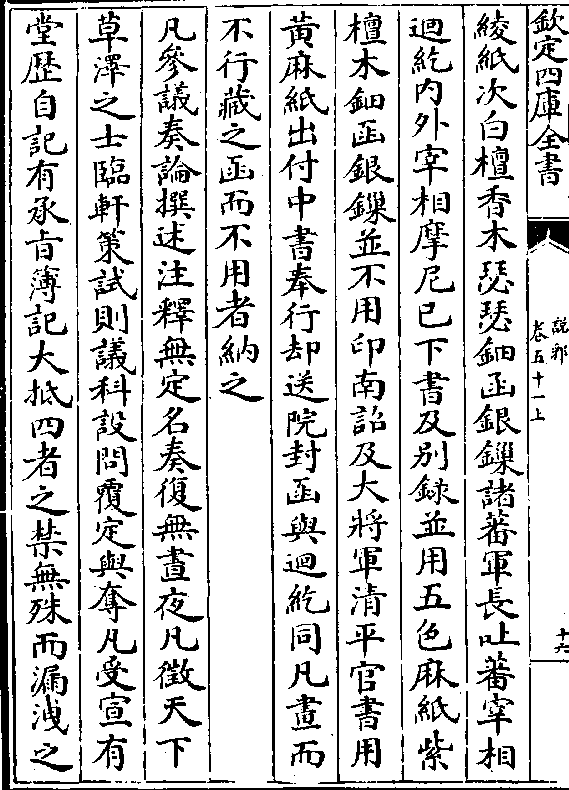 欽定四庫全書
說郛
卷五十一上
十六
綾紙次白檀香木瑟瑟鈿函銀鏁諸蕃軍長吐蕃宰相
迴紇内外宰相摩尼已下書及别錄並用五色麻紙紫
檀木鈿函銀鏁並不用印南詔及大將軍清平官書用
黄麻紙出付中書奉行却送院封函與迴紇同凡畫而
不行藏之函而不用者納之
凡參議奏論撰述注釋無定名奏復無晝夜凡徵天下
草澤之士臨軒策試則議科設問覆定與奪凡受宣有
堂歴自記有承㫖簿記大抵四者之禁無殊而漏洩之